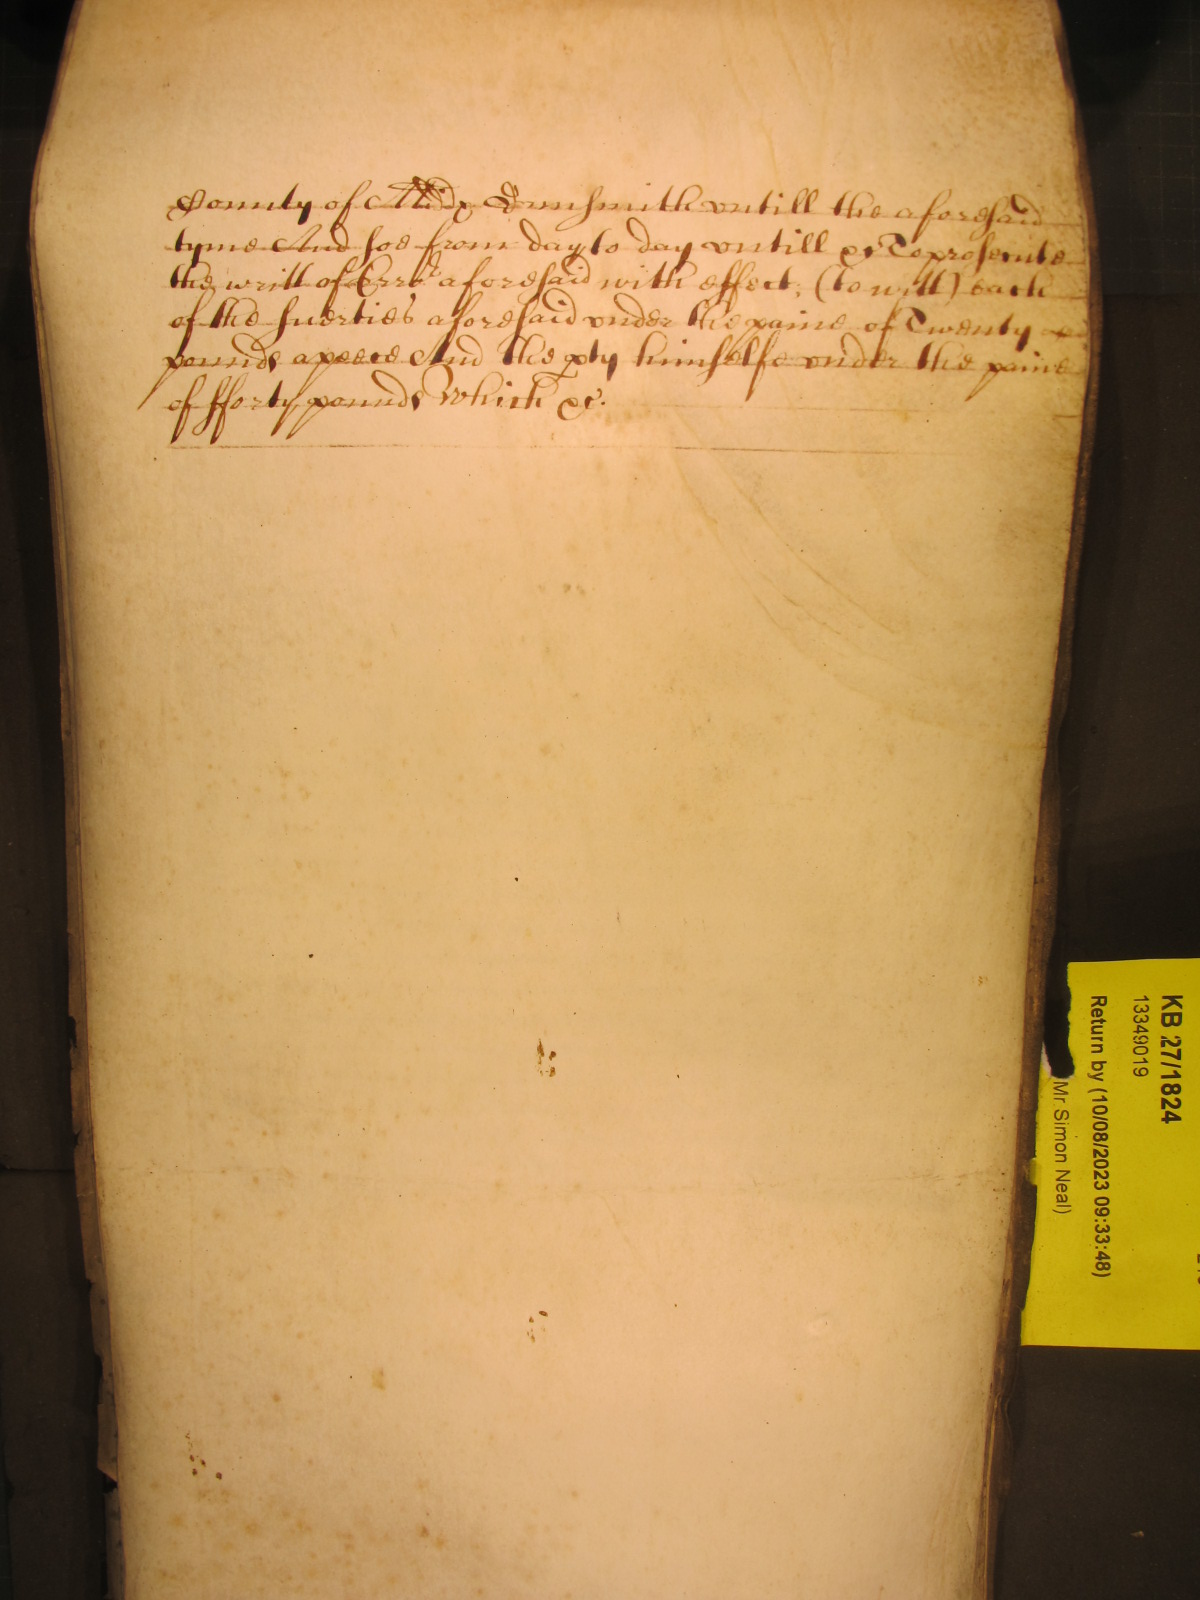 County of Middx Gunsmith vntill the aforesaid
tyme And soe from day to day vntill &c To prosecute
the writt of Erro^r aforesaid with effect, (to witt) each
of the suerties aforesaid vnder the paine of Twenty
pounds apeece And the pty himselfe vnder the paine
of fforty pounds Which &c.
KB 27/1824
13349019
Return by (10/08/2023 09:33:48)
Mr Simon Neal)